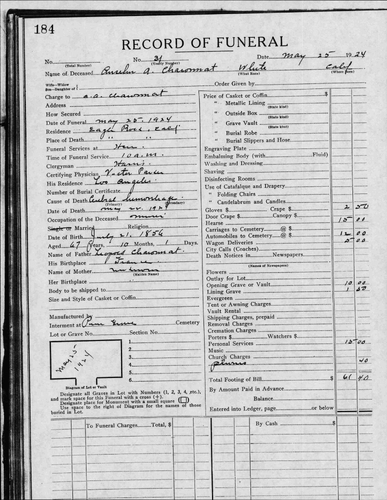 184
RECORD OF FUNERAL
No. No. 31 Date, May 25 1924
(Yearly Number)
Name of Deceased A. White Calif
(What Race) (Where Born)
Wife—Widow
Son—Daughter of Order Given by:
Charge to Price of Casket or Coffin
Address " Metallic Lining
(State kind)
How Secured " Outside Box
(State kind)
Date of Funeral May 25, 1924 " Grave Vault
(State kind)
Residence Eagle Rock, Calif " Burial Robe
(State kind)
Place of Death " " " " Burial Slippers and Hose
Funeral Services at Engraving Plate
Time of Funeral Service 10 a.m. Embalming Body (with Fluid)
Clergyman Harris Washing and Dressing
Certifying Physician Shaving
His Residence Los Angeles Disinfecting Rooms
Number of Burial Certificate Use of Catafalque and Drapery
Cause of Death " Folding Chairs
Date of Death May 1924 " Candelabrum and Candles
Occupation of the Deceased Gloves $ Crape $ 2 50
Single or Married Religion Door Crape $ Canopy $
Date of Birth July 21, 1856 Hearse 15 00
Aged 67 Years, 10 Months, 1 Days Carriages to Cemetery @ $
Name of Father Automobiles to Cemetery @ $ 12 00
His Birthplace France Wagon Deliveries 5 00
Name of Mother unknown City Calls (Coaches)
(Maiden Name)
Her Birthplace Death Notices in Newspapers
(Names of Newspapers)
Body to be shipped to Flowers
Size and Style of Casket or Coffin Outlay for Lot
Opening Grave or Vault 10 00
Lining Grave
Evergreen
Tent or Awning Charges
Manufactured by Vault Rental
Interment at Cemetery Shipping Charges, prepaid
Lot or Grave No. Section No. Removal Charges
Cremation Charges
1. Porters $ Watchers $
2. Personal Services 15 00
3. Music
May 25 1924 4. Church Charges
5. 40
6. Total Footing of Bill $ 61 40
Diagram of Lot or Vault By Amount Paid in Advance
Designate all Graves in Lot with Numbers (1, 2, 3, 4, etc.,) Balance
and mark space for this Funeral with a cross (+). Entered into Ledger, page or below
Designate place for Monument with a small square (□)
Use space to the right of Diagram for the names of those buried in Lot.
To Funeral Charges Total, $ By Cash $